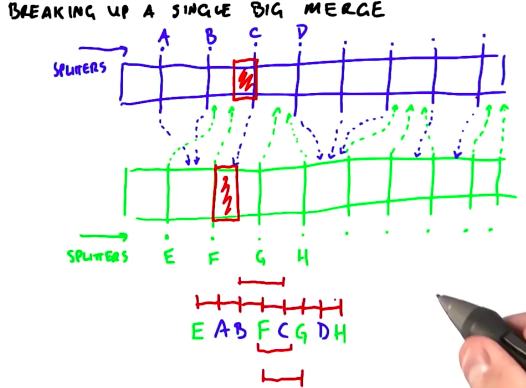 BREAKING UP A SINGLE BIG MERGE
A B C D
SPLITERS
SPLITTERS E F G H
E A B F C G D H